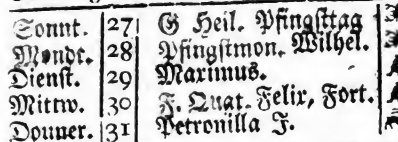 Sonnt. 27 G Heil. Pfingsttag
Mondt. 28 Pfingstmon. Wilhel.
Dienst. 29 Maximus.
Mittw. 30 F. Quat. Felix, Fort.
Donner. 31 Petronilla J.